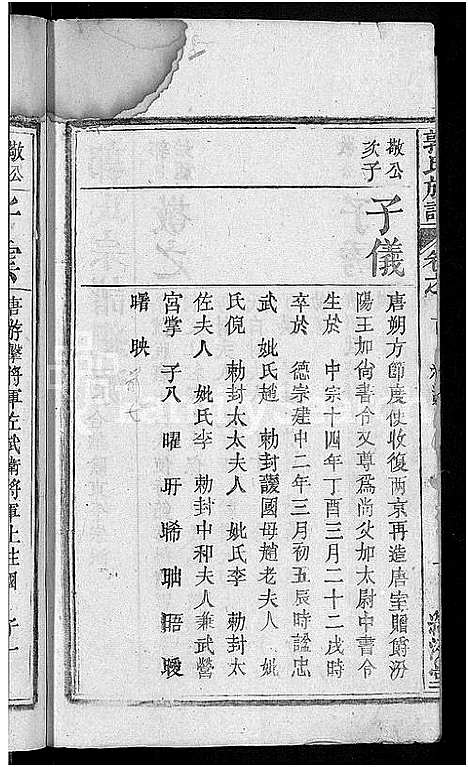 郭氏族譜
敬公
次子
子儀
唐朔方節度使收復兩京再造唐室贈爵汾
陽王加尚書令又尊為尚父加太尉中書令
生於 中宗十四年丁酉三月二十二戌時
卒於 德宗建中二年三月初五辰時謚忠
武 妣氏趙 勅封護國母趙老夫人 妣
氏倪 勅封太太夫人 妣氏李 勅封太
佐夫人 妣氏李 勅封中和夫人兼武營
宮掌 子八 曜 旰 晞 昢 晤 曖
曙 映
敬公
子雲
唐游擊將軍左武衛將軍上柱國 子一